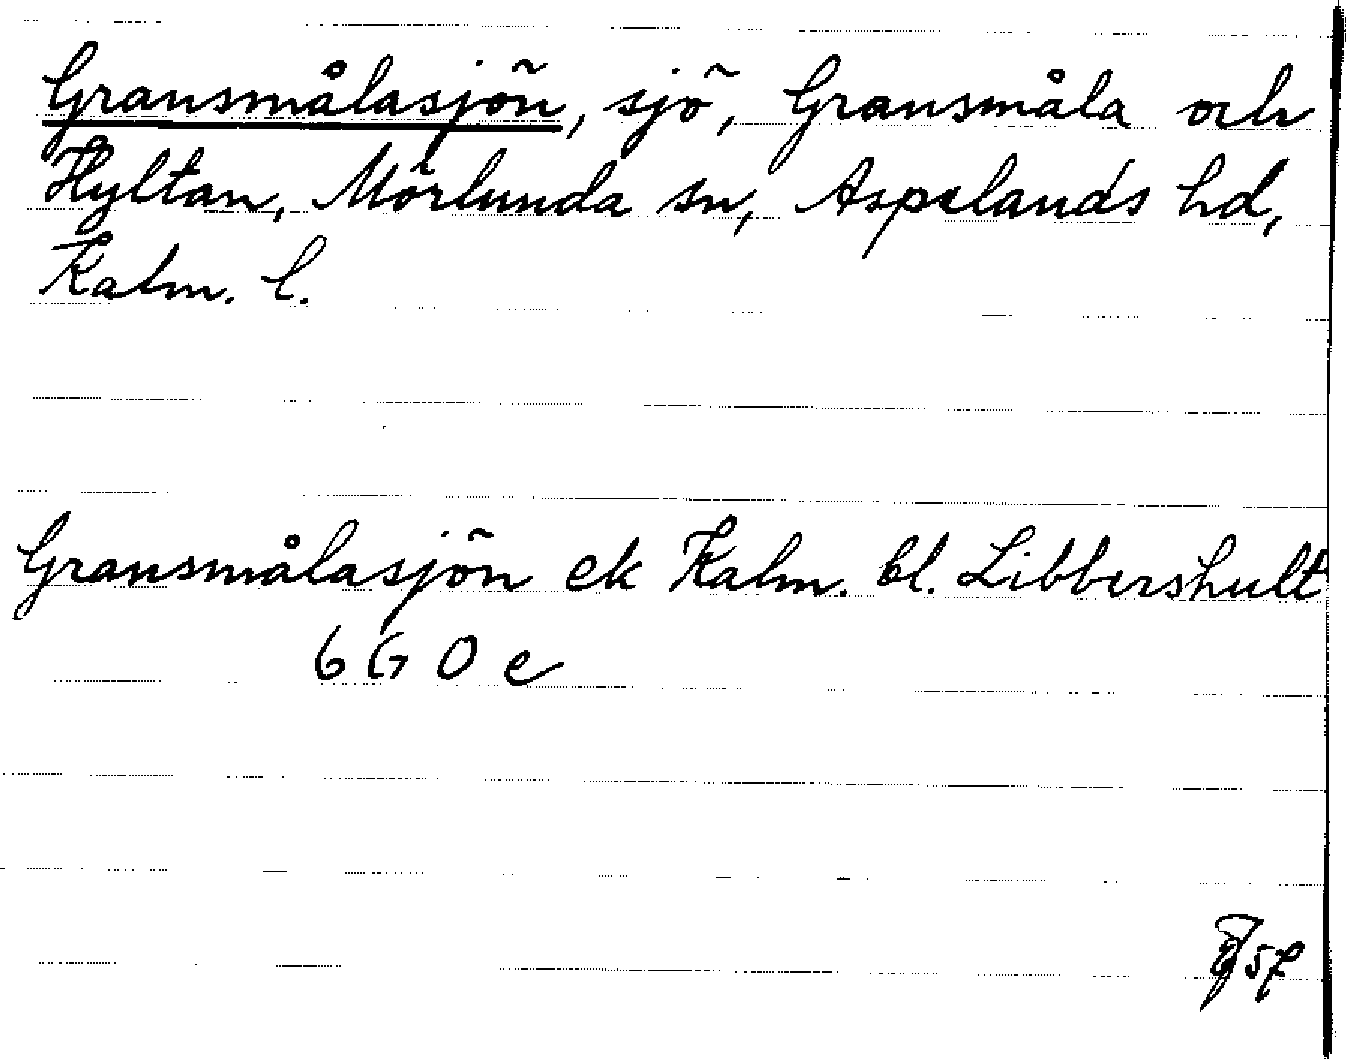 Gransmålasjön, sjö, Gransmåla och
Hyltan, Mörlunda sn, Aspelands hd,
Kalm. l.
Gransmålasjön ek Kalm. bl. Libbershult
6 G O e
57